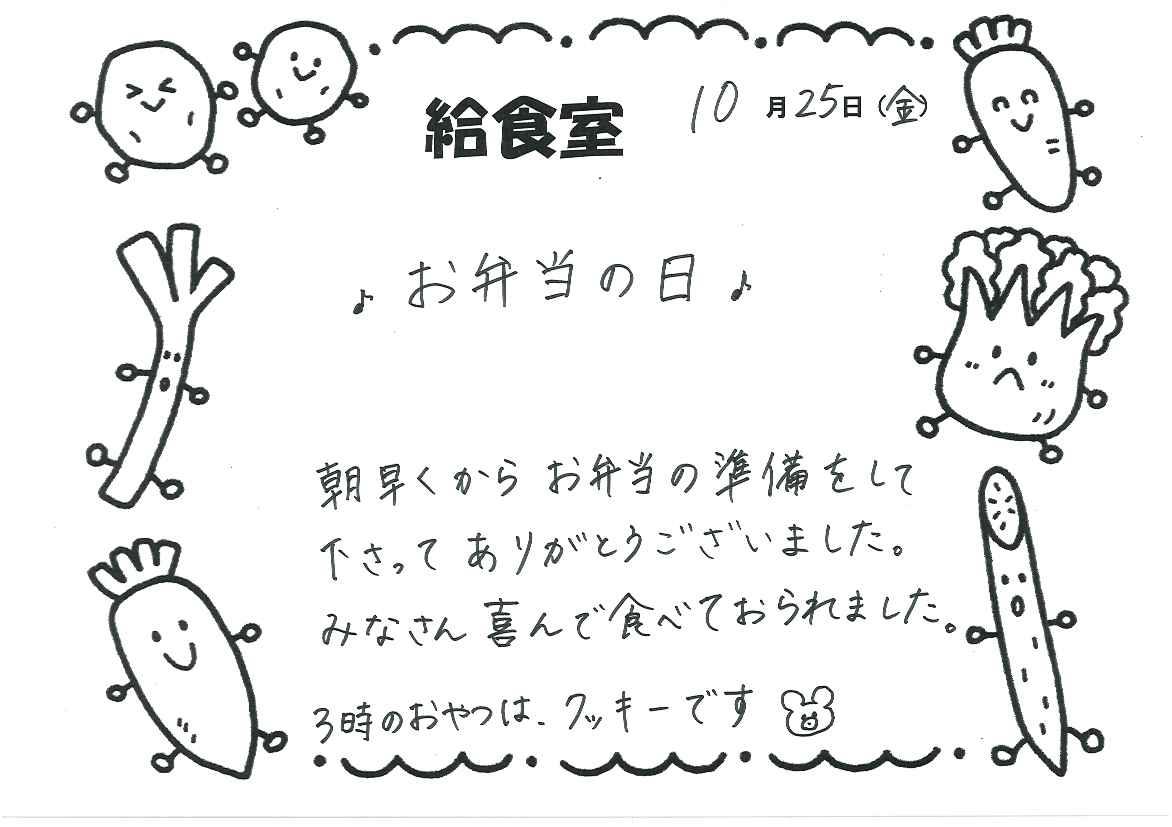 給食室 10月25日(金)
♪お弁当の日♪
朝早くからお弁当の準備をして
下さってありがとうございました。
みなさん喜んで食べておられました。
3時のおやつは、クッキーです